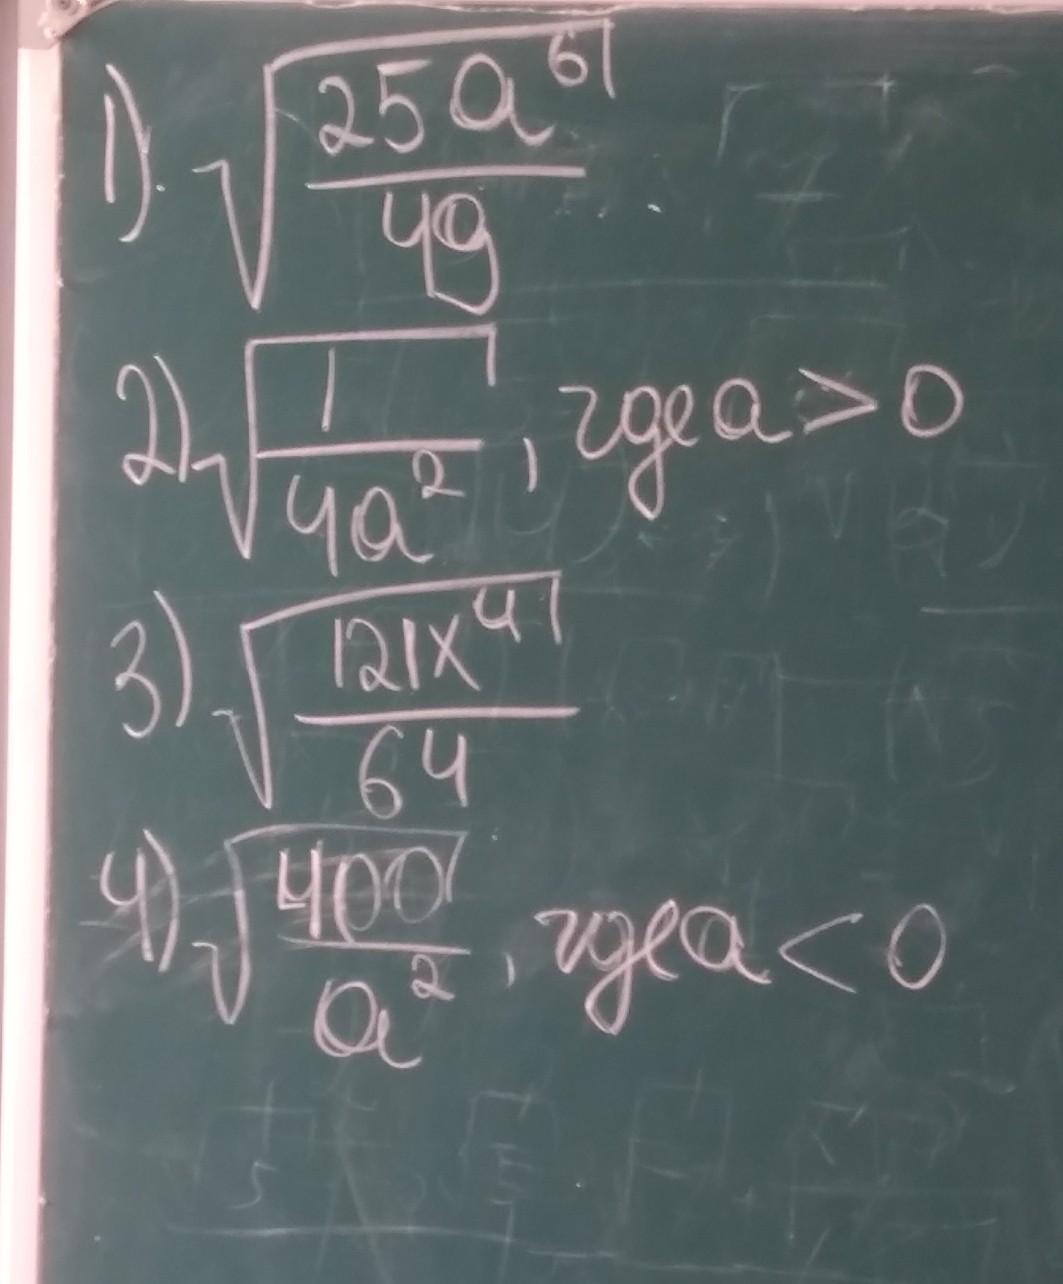 1). √(25a⁶/49)
2) √(1/4a²), где a > 0
3) √(121x⁴/64)
4) √(400/a²), где a < 0